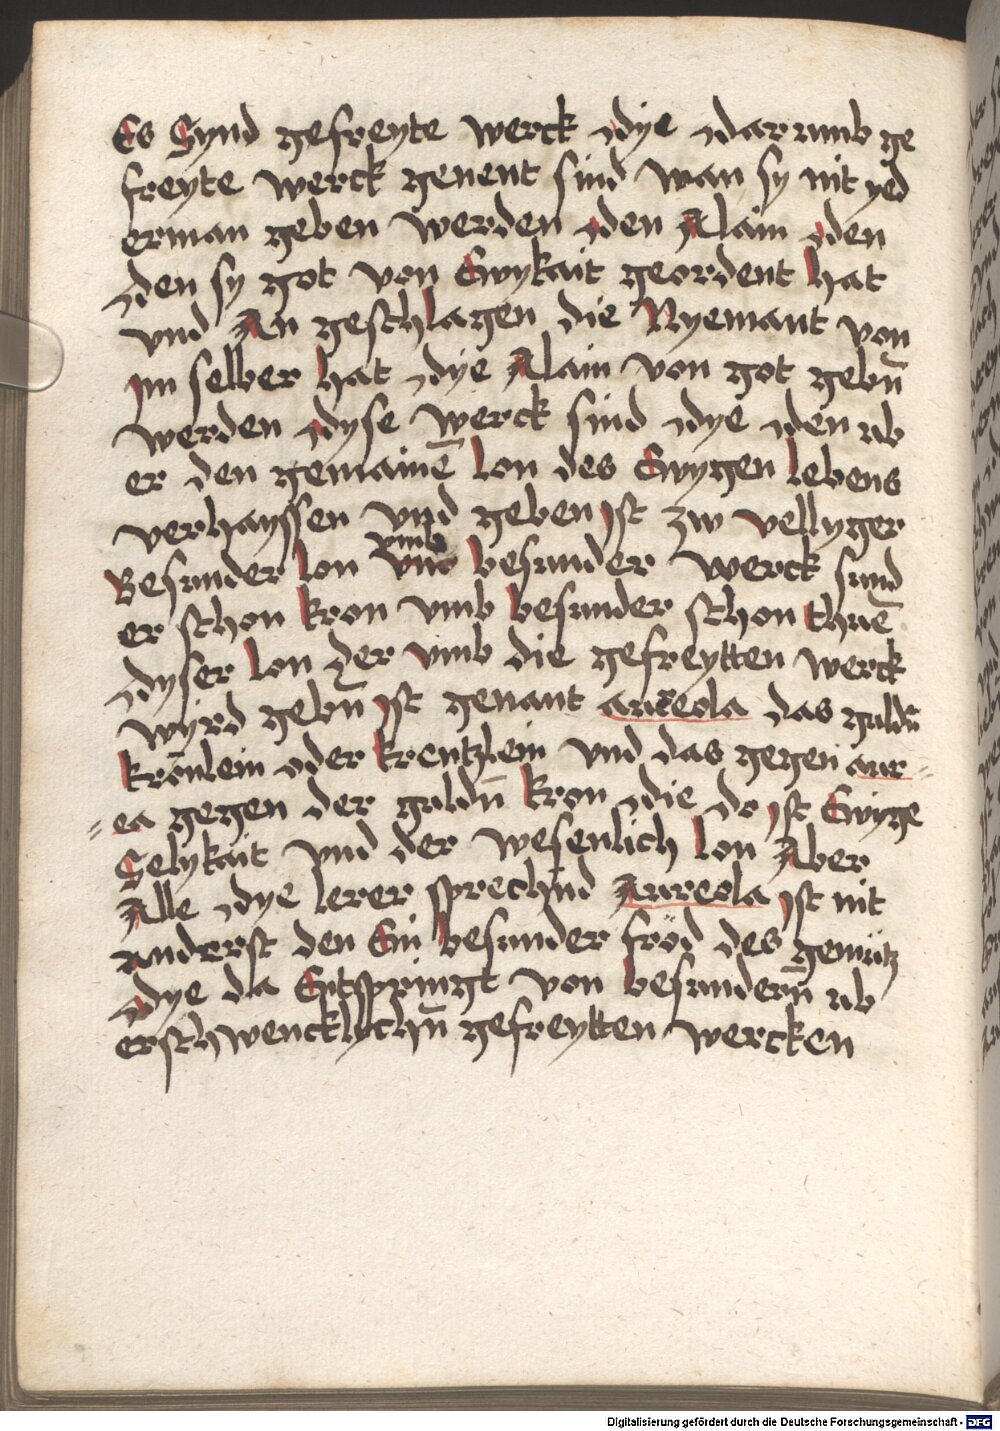 Es Synd gefreyte werck dye dar vmb ge
freyte werck genent sind wan sy nit yed
erman geben werden den Alain den
den sy got von Ewykait geordent hat
vnd An geschlagen die Nyemant von
Im selber hat dye Alain von got gebn̄
werden dyse werck sind dye den ub
er den gemainē lon des Ewygen lebens
verhayssen vnd geben Ist zw vellyger
Besunder lon vmb besunder werck sund
er schon kron vmb besunder schon thuē
dyser lon der vmb die gefreytten werck
wyrd gebn̄ Ist genant aureola das guldn̄
krönlein oder krentzlein vnd das gegen aur=
=ea gegen der guldn̄ kron die do Ist Ewige
Selykait vnd der wesenlich lon Aber
Alle dye lerer sprechnd Aureola Ist nit
anderst den Ein besunder fröd des gemütz
dye da Entspringt von besundern̄ ub
erschwencklychn̄ gefreytten wercken
Digitalisierung gefördert durch die Deutsche Forschungsgemeinschaft - DFG